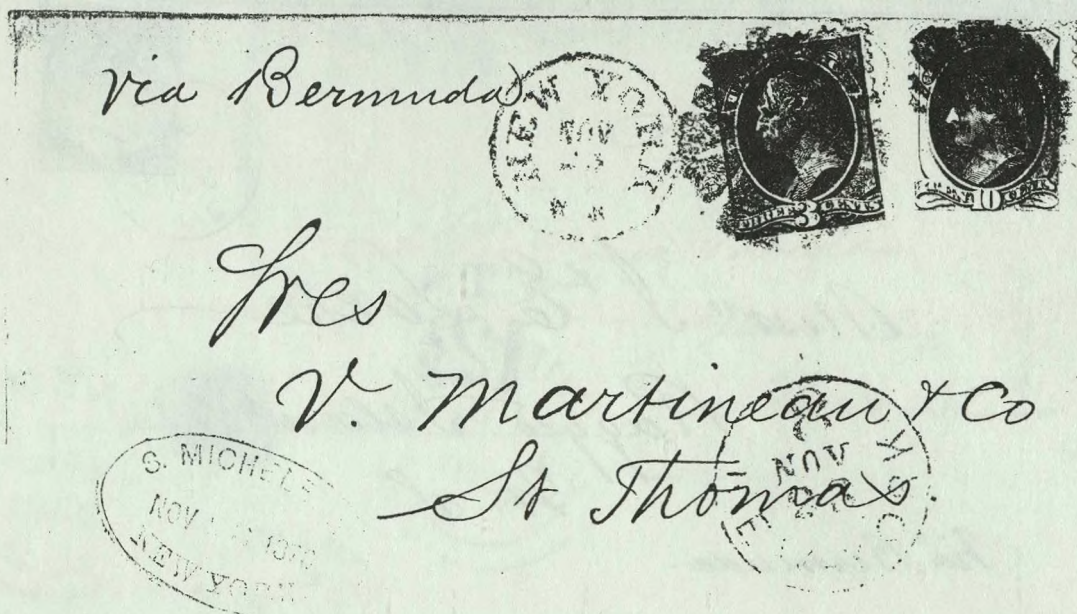 via Bermuda
NEW YORK
NOV
THREE 3 CENTS
10
Sres
V. Martineau & Co
St Thomas.
S. MICHEL
NOV
NEW YORK
NOV